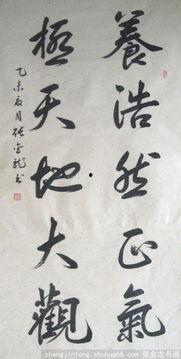 養浩然正氣
極天地大觀
乙未夏月張金龍書
zhangyinlong.shuhua66.com 张金龙书画